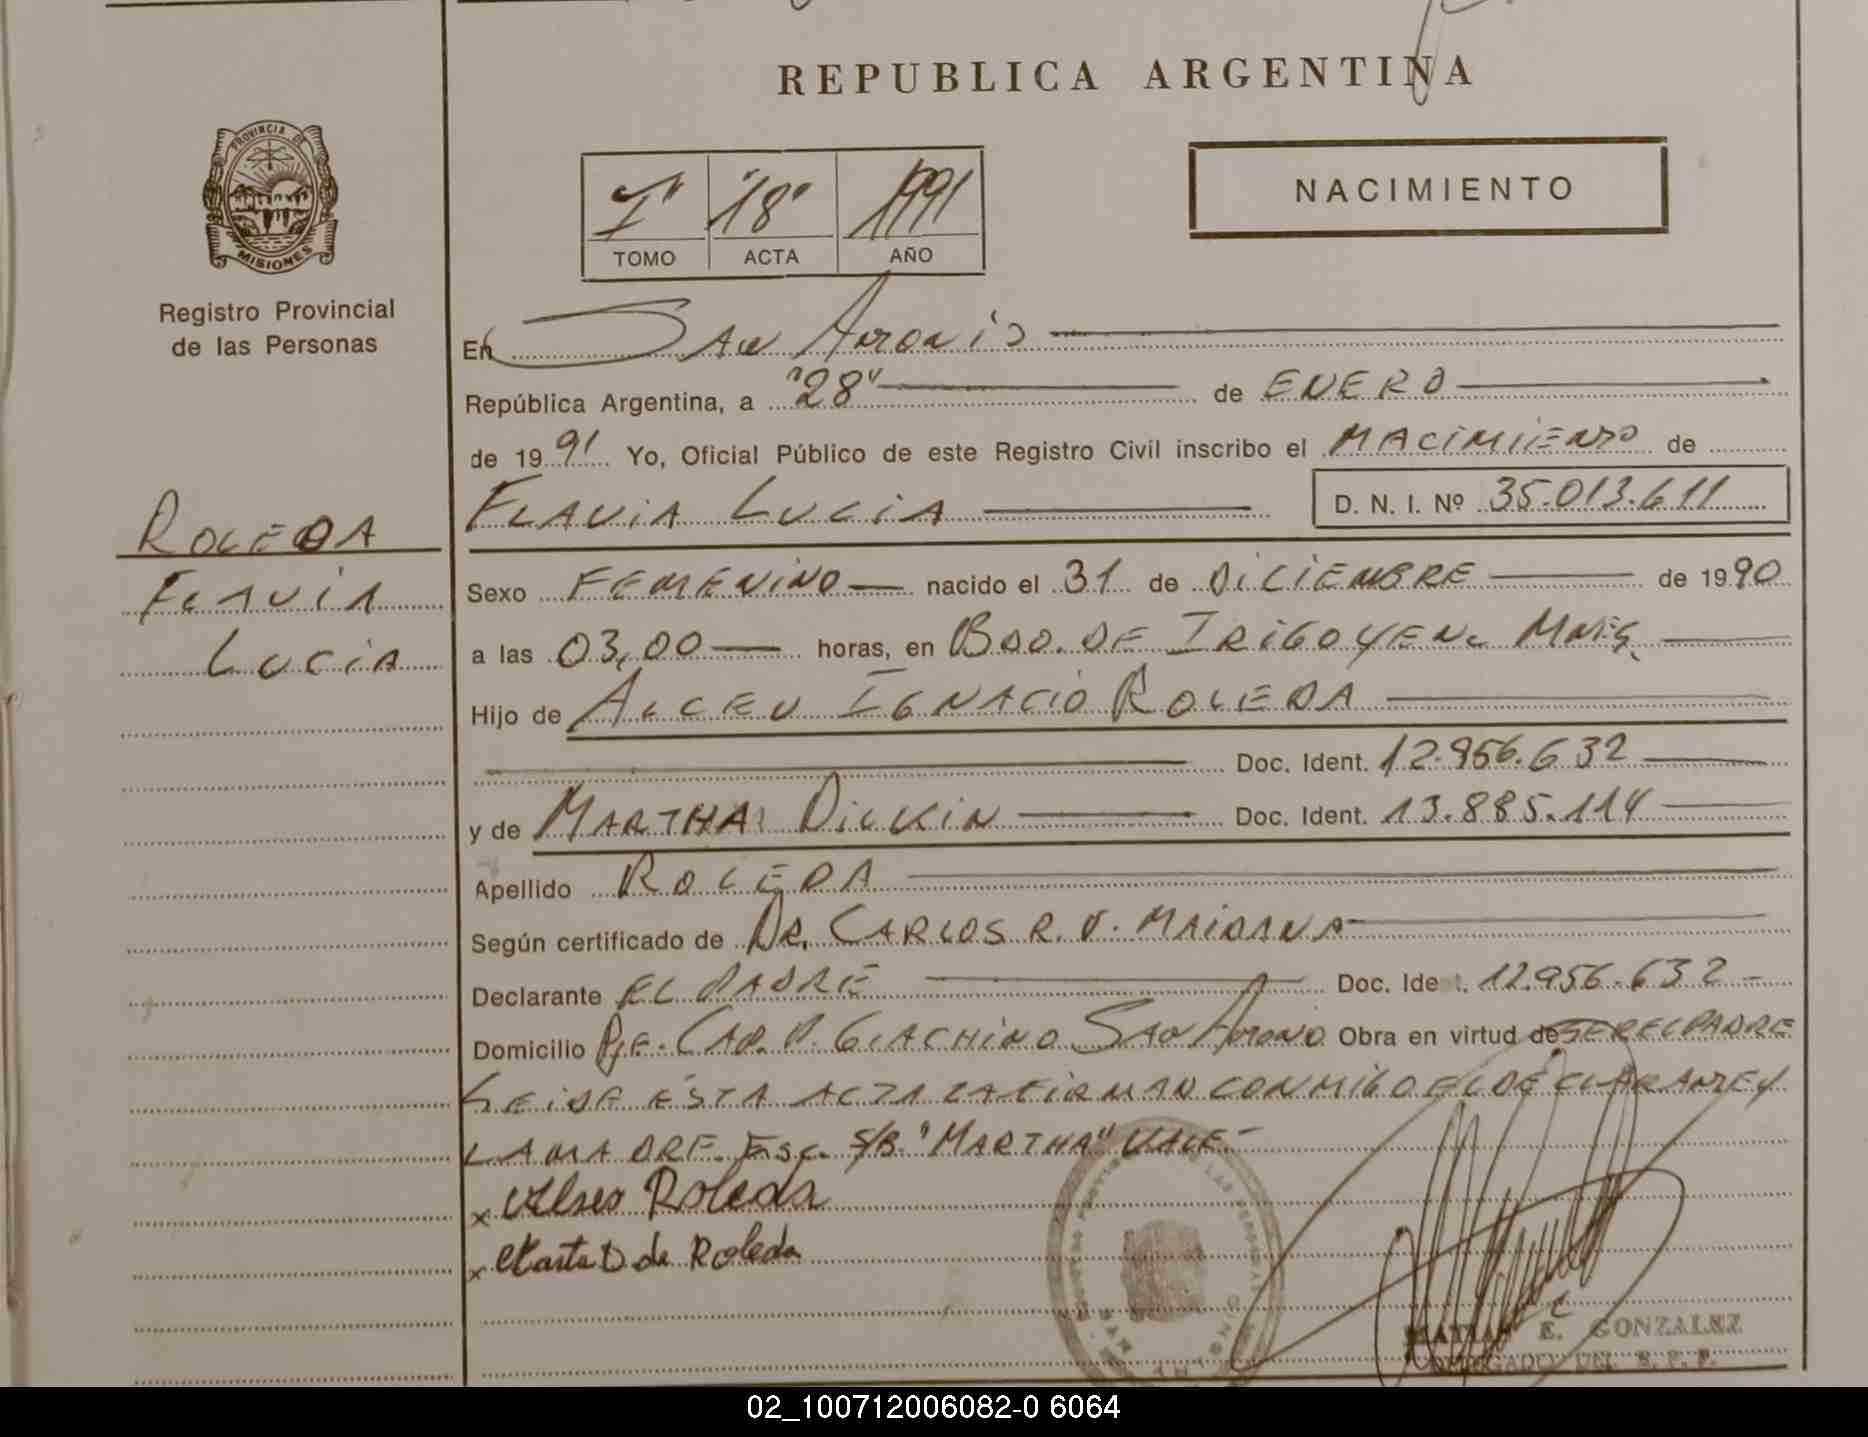 REPUBLICA ARGENTINA
PROVINCIA DE
MISIONES
Registro Provincial
de las Personas
I" "18" 1991
TOMO ACTA AÑO
NACIMIENTO
En SAN ANTONIO
República Argentina, a "28" de ENERO
de 1991 Yo, Oficial Público de este Registro Civil inscribo el NACIMIENTO de
FLAVIA LUCIA D. N. I. Nº 35.013.611
ROLEDA
FLAVIA
LUCIA
Sexo FEMENINO nacido el 31 de DICIEMBRE de 1990
a las 03,00 horas, en BDO. DE IRIGOYEN. MNES.
Hijo de ALCEU IGNACIO ROLEDA
Doc. Ident. 12.956.632
y de MARTHA DILKIN Doc. Ident. 13.885.114
Apellido ROLEDA
Según certificado de DR. CARLOS R. V. MAIDANA
Declarante EL PADRE Doc. Ident. 12.956.632
Domicilio PJE. CAP. P. GIACHINO SAN ANTONIO Obra en virtud de SER EL PADRE
LEIDA ESTA ACTA LA FIRMAN CONMIGO EL DECLARANTE Y
LA MADRE. Esc. S/B. "MARTHA" VALE-
x Alseo Roleda
x Marta D de Roleda
E. GONZALEZ
DELEGADO DEL R. P. P.
02_100712006082-0 6064